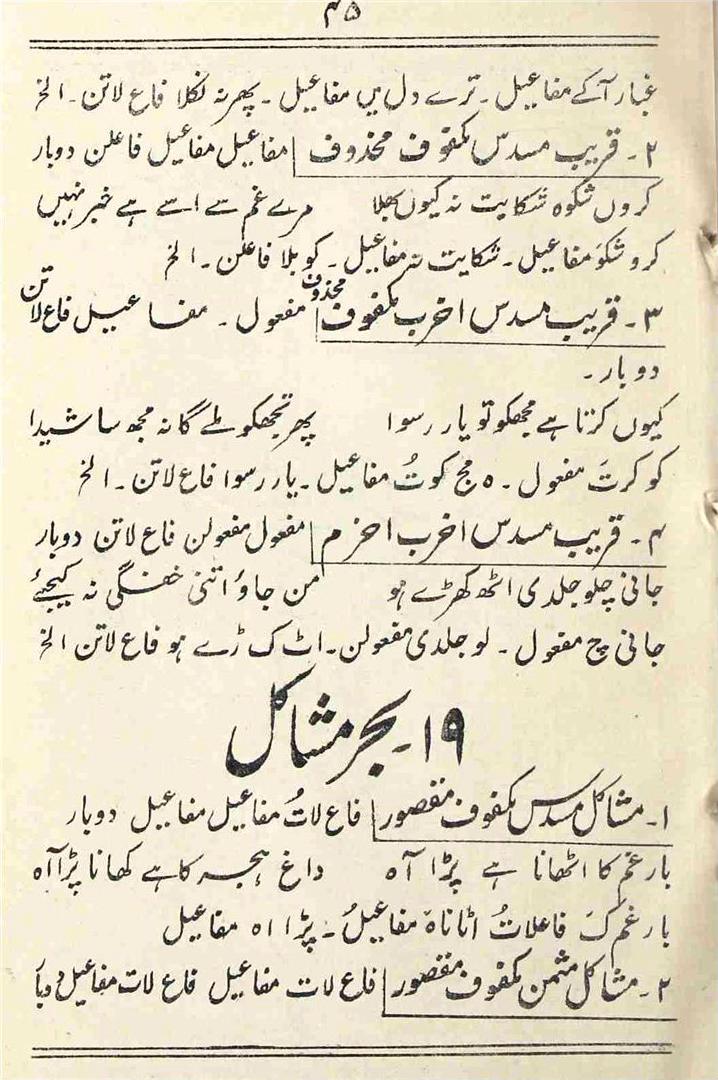 ۴۵
غبار آکے مفاعیل ۔ ترے دل میں مفاعیل ۔ پھر نہ نکلا فاع لاتن ۔ الخ
۲۔ قریب مسدس مکفوف محذوف مفاعیل مفاعیل فاعلن دوبار
کروں شکوہ شکایت نہ کیوں بھلا مرے غم سے اسے ہے خبر نہیں
کرو شکوَ مفاعیل ۔ شکایت نہ مفاعیل ۔ کو بلا فاعلن ۔ الخ
۳۔ قریب مسدس اخرب مکفوف محذوف مفعول ۔ مفاعیل فاع لاتن
دوبار ۔
کیوں کرتا ہے مجھکو تو یار رسوا پھر تجھکو ملے گا نہ مجھ سا شیدا
کو کرتَ مفعول ۔ ہ مج کوتُ مفاعیل ۔ یار رسوا فاع لاتن ۔ الخ
۴۔ قریب مسدس اخرب اخرم مفعول مفعولن فاع لاتن دوبار
جانی چلو جلدی اٹھ کھڑے ہو من جاؤ اتنی خفگی نہ کیجئے
جانی چ مفعول ۔ لو جلدی مفعولن ۔ اٹ ک ڑے ہو فاع لاتن الخ
۱۹۔ بحر مشاکل
۱۔ مشاکل مسدس مکفوف مقصور فاع لاتُ مفاعیل مفاعیل دوبار
بار غم کا اٹھانا ہے پڑا آہ داغ ہجر کا ہے کھانا پڑا آہ
بار غم کَ فاعلاتُ اٹانا ہَ مفاعیلُ ۔ پڑا اہ مفاعیل
۲۔ مشاکل مثمن مکفوف مقصور فاع لات مفاعیل فاع لات مفاعیل دوبار